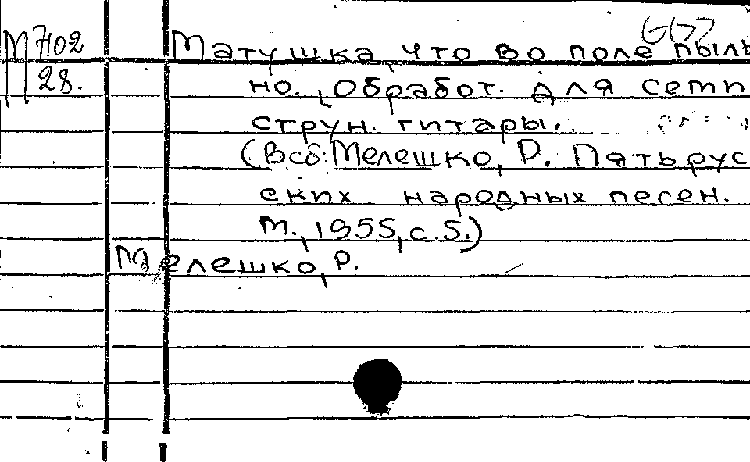 М 7-102
28.
Матушка, что во поле пыль
но. Обработ. для семи
струн. гитары.
(В сб: Мелешко, Р. Пять рус
ских народных песен.
М., 1955, с. 5.)
Мелешко, Р.